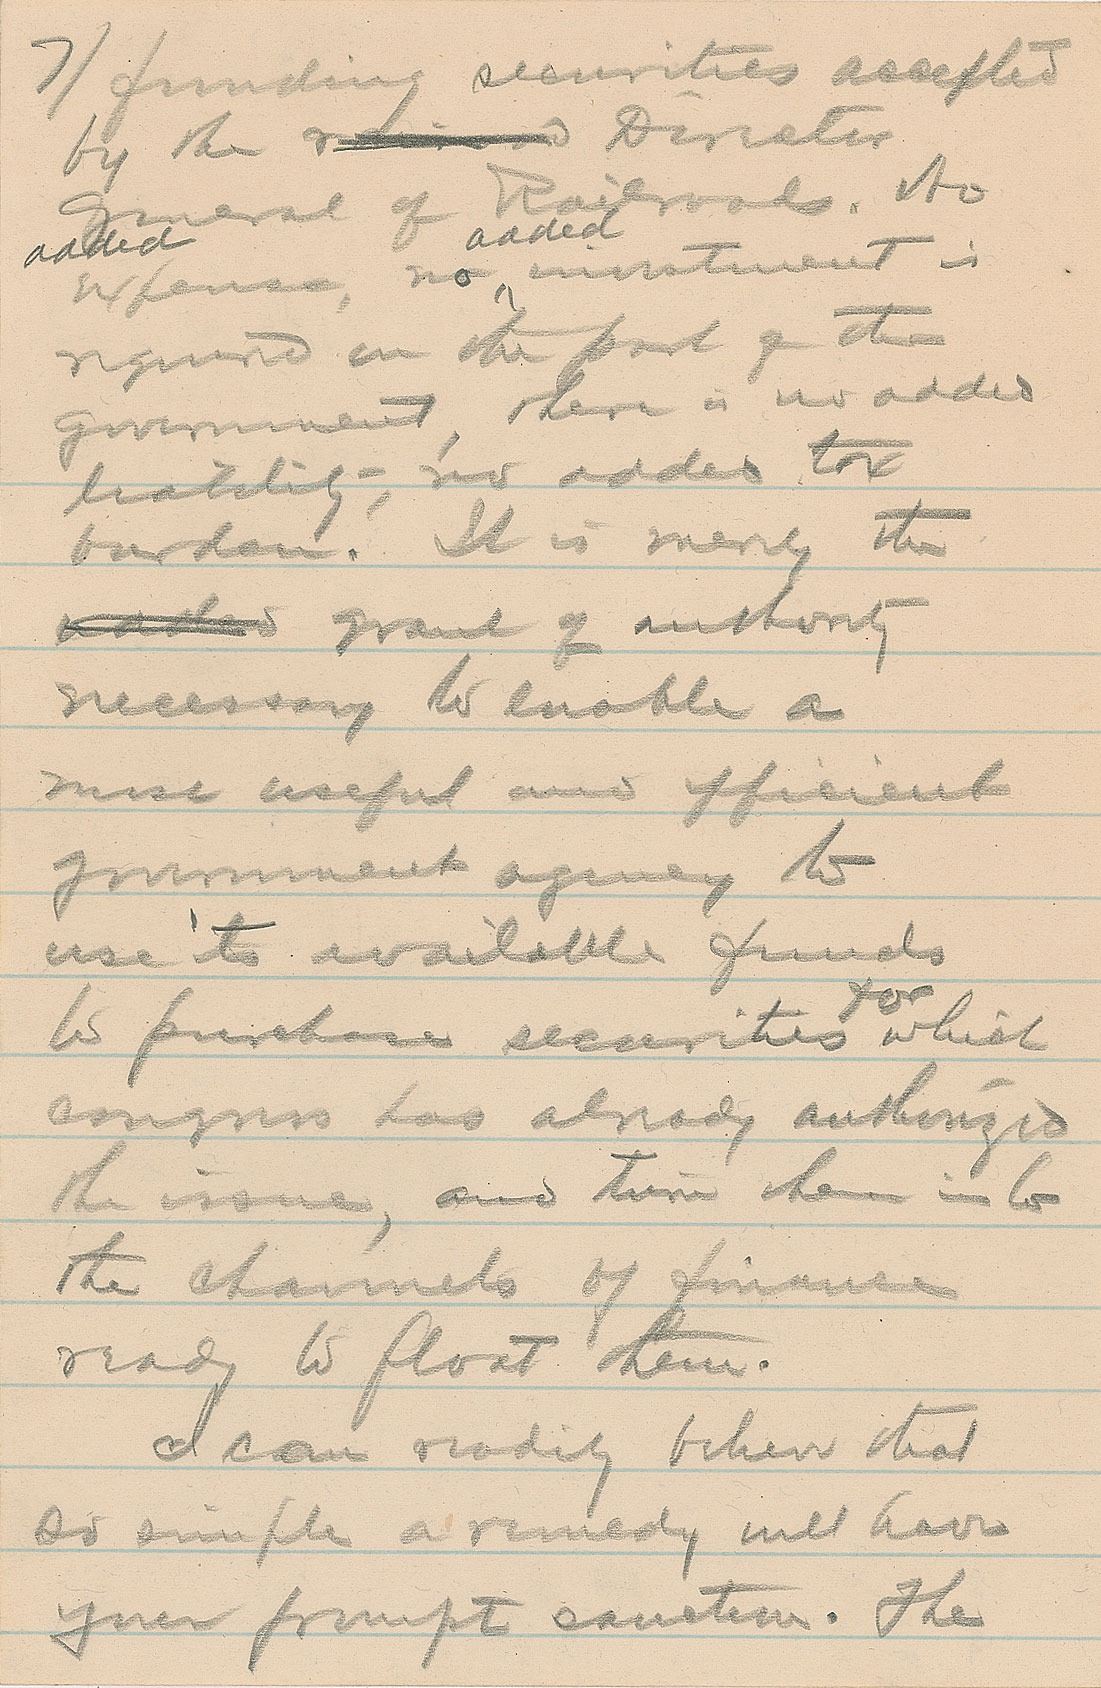 7/ funding securities accepted
by the Director
General of Railroads. No
added added
expense, no investment is
required on the part of the
government, there is no added
liability, no added tax
burden. It is merely the
grant of authority
necessary to enable a
most useful and efficient
government agency to
use its available funds
to purchase securities for which
congress has already authorized
the issue, and turn them into
the channels of finance
ready to float them.
I can readily believe that
so simple a remedy will have
your prompt sanction. The